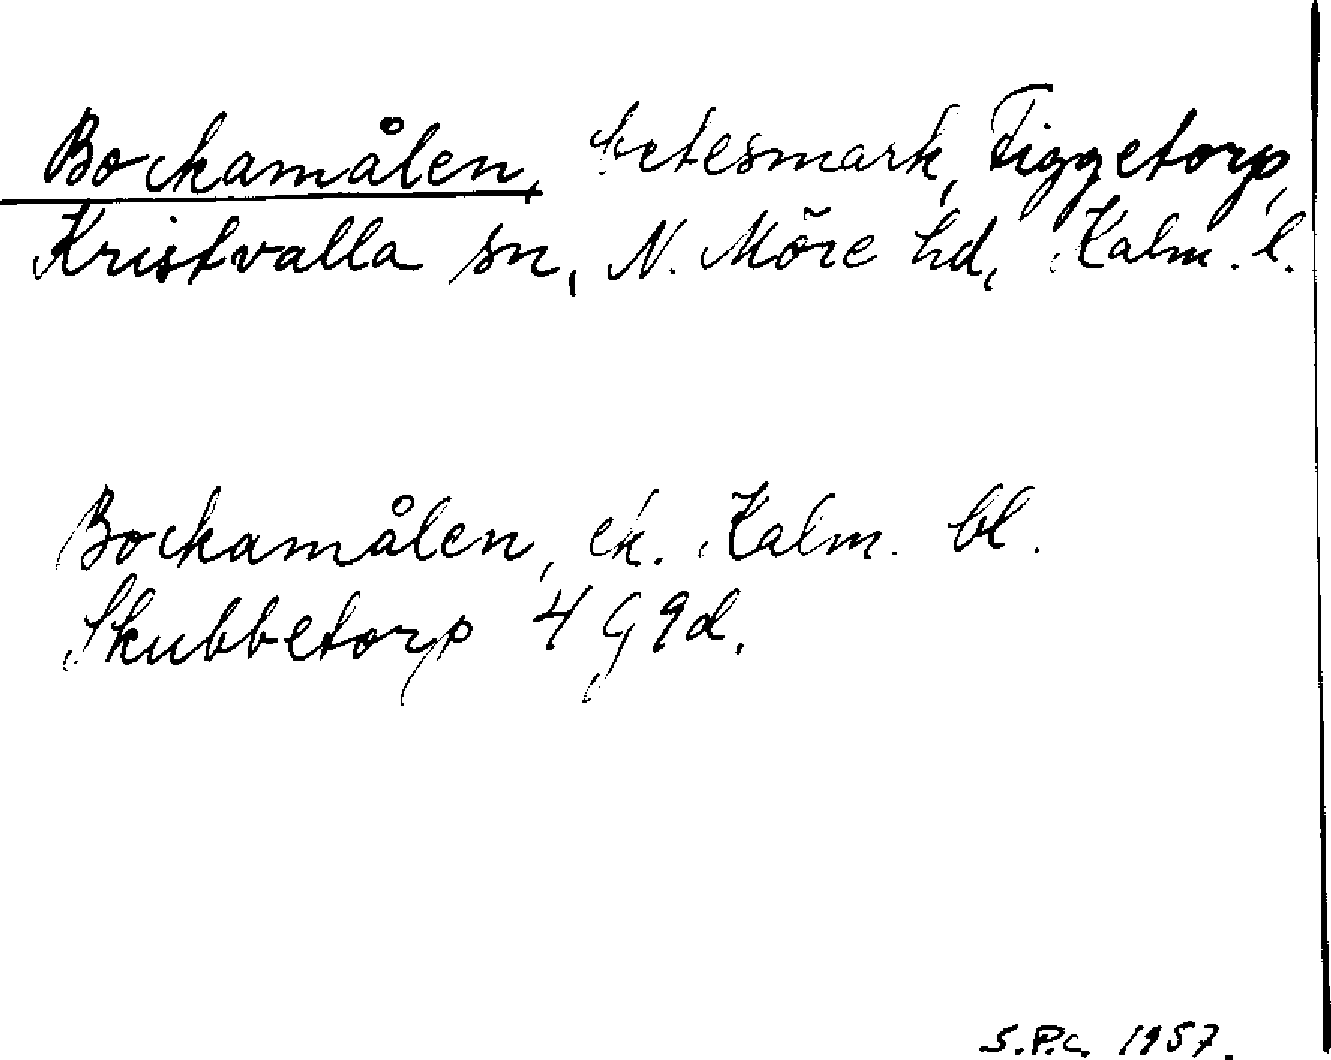 Bockamålen, betesmark, Figgetorp,
Kristvalla sn, N. Möre hd, Kalm. l.
Bockamålen, ek. Kalm. bl.
Skubbetorp 4 G 9d.
S.P.C. 1957.